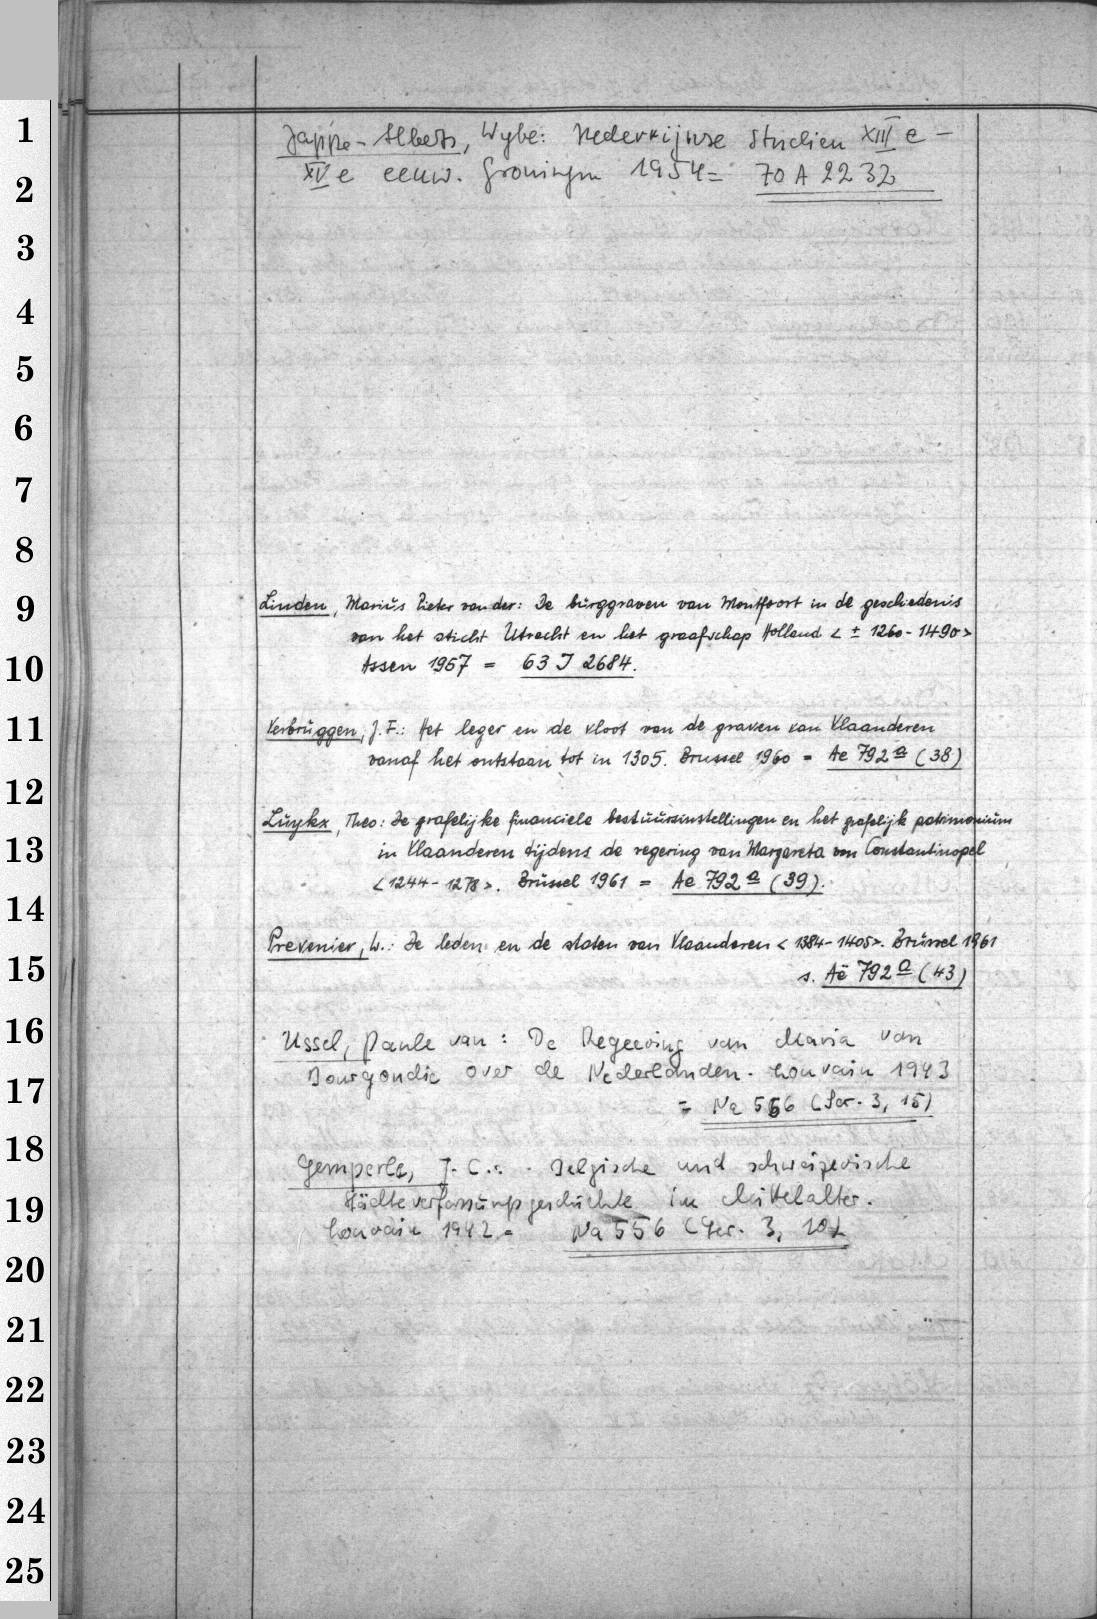 1
2
3
4
5
6
7
8
9
10
11
12
13
14
15
16
17
18
19
20
21
22
23
24
25
Jappe-Alberts, Wybe: Nederrijnse Studien XIII e -
XV e eeuw. Groningen 1954 = 70 A 2232
Linden, Marius Pieter van der: De burggraven van Montfoort in de geschiedenis
van het sticht Utrecht en het graafschap Holland < ± 1260 - 1490>
Assen 1957 = 63 J 2684.
Verbruggen, J.F.: Het leger en de vloot van de graven van Vlaanderen
vanaf het ontstaan tot in 1305. Brussel 1960 = Ae 792 a (38)
Luykx, Theo: De grafelijke financiele bestuursinstellingen en het grafelijk patrimonium
in Vlaanderen tijdens de regering van Margareta van Constantinopel
<1244 - 1278>. Brüssel 1961 = Ae 792 a (39).
Prevenier, W.: De leden en de staten van Vlaanderen < 1384 - 1405>. Brüssel 1961
s. Ae 792 a (43)
Ussel, Paule van: De Regeering van Maria van
Bourgondie over de Nederlanden. Louvain 1943
= Na 556 (Ser. 3, 15)
Gemperle, J. C.: Belgische und schweizerische
Städteverfassungsgeschichte im Mittelalter.
Louvain 1942 = Na 556 (Ser. 3,